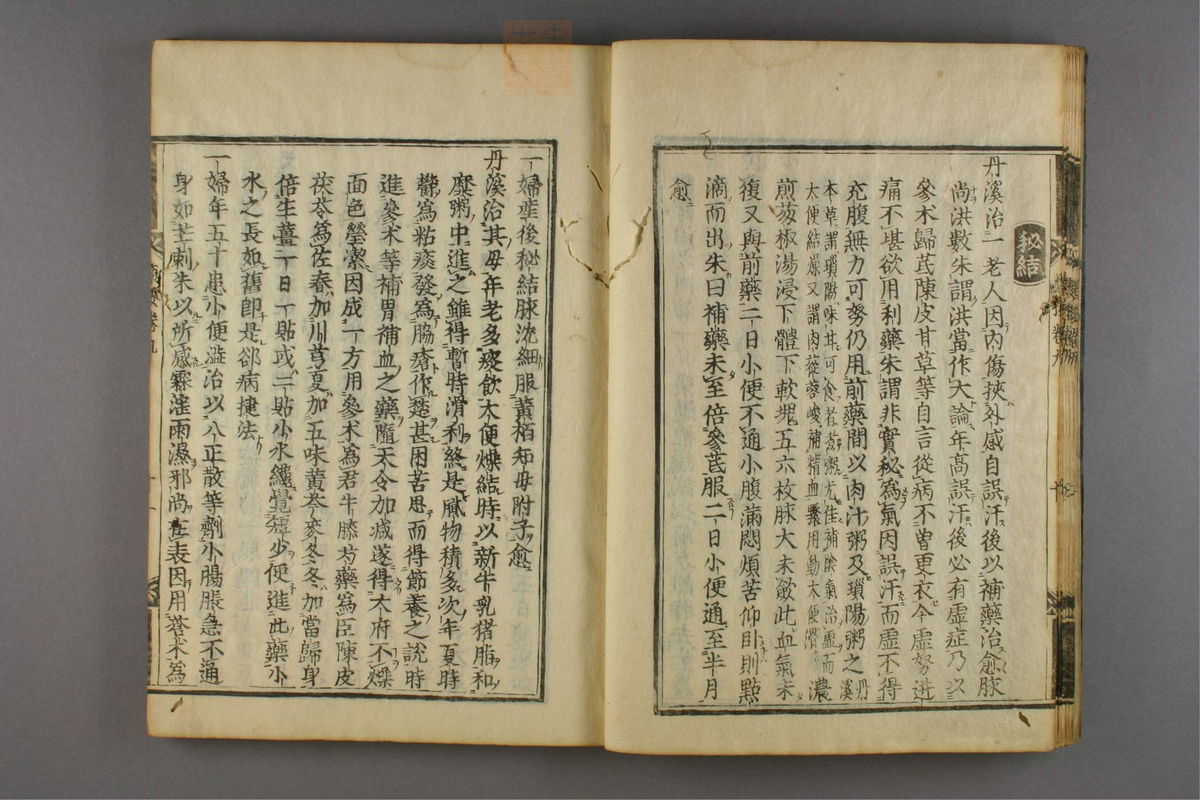 秘結
丹溪治一老人因内傷挾外感自誤汗後以補藥治愈脉
尚洪數朱謂洪當作大論年高誤汗後必有虚症乃以
參术歸芪陳皮甘草等自言從病不曽更衣今虚努迸
痛不堪欲用利藥朱謂非實秘為氣因誤汗而虚不得
充腹無力可努仍用前藥間以肉汁粥及瑣陽粥之丹溪
本草謂瑣陽味甘可食若煮粥尤佳補陰氣治虚而
大便結燥又謂肉蓯蓉峻補精血驟用動大便滑濃
煎葱椒湯浸下體下軟塊五六枚脉大未斂此血氣未
復又與前藥二日小便不通小腹滿悶煩苦仰卧則點
滴而出朱曰補藥未至倍參芪服二日小便通至半月
愈
一婦産後秘結脉沈細服黄栢知母附子愈
丹溪治其母年老多痰飲大便燥結時以新牛乳猪脂和
糜粥中進之雖得暫時滑利終是膩物積多次年夏時
欝為粘痰發為脇瘡作楚甚困苦思而得節養之說時
進參术等補胃補血之藥隨天令加减遂得大府不燥
面色瑩潔因成一方用參术為君牛膝芍藥為臣陳皮
茯苓為佐春加川芎夏加五味黄芩麥冬冬加當歸身
倍生薑一日一貼或二貼小水纔覺短少便進此藥小
水之長如舊即是却病捷法
一婦年五十患小便澁治以八正散等劑小腸脹急不通
身如芒刺朱以所感霖滛雨濕邪尚在表因用蒼术為